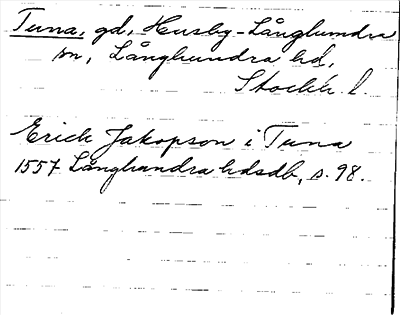 Tuna, gd, Husby-Långhundra
sn, Långhundra hd,
Stockh. l.
Erick Jakopson i Tuna
1557 Långhundra hdsdb, s. 98.